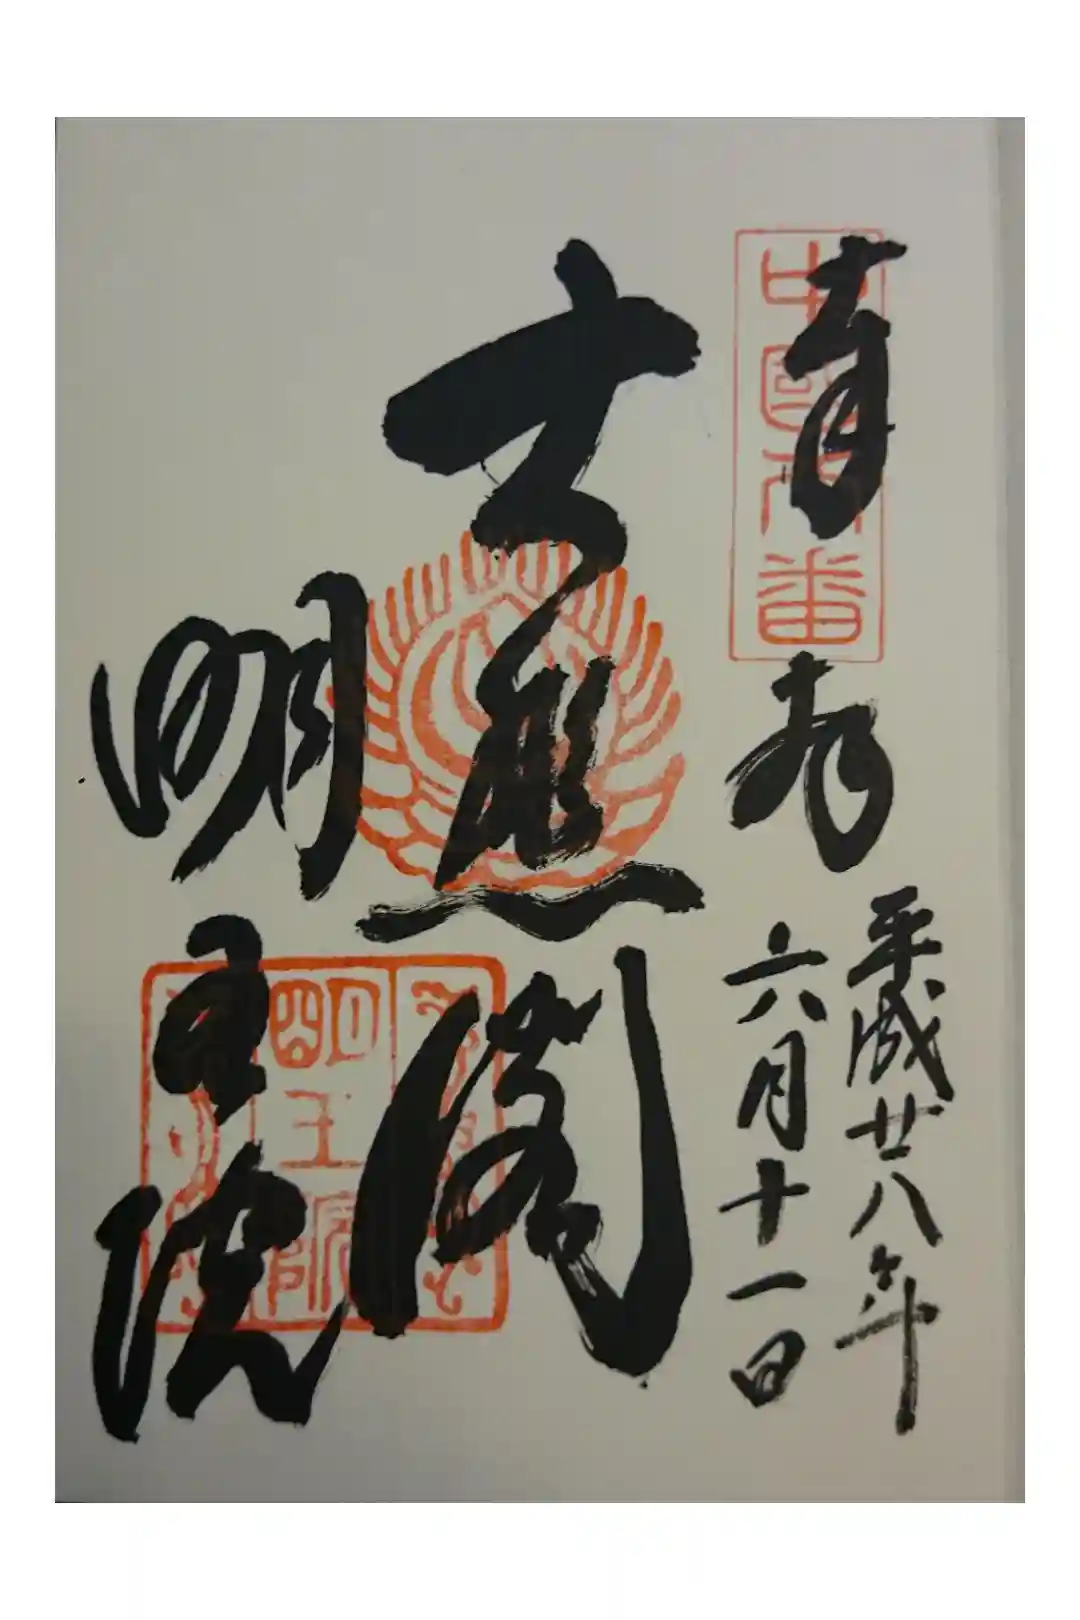 奉拝
中國八番
平成廿八年
六月十一日
大悲閣
明王院
明王院